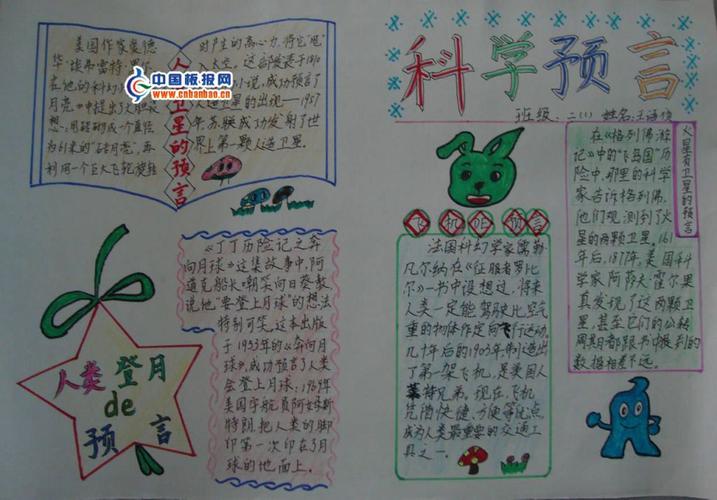 科学预言
班级:二(1) 姓名:王语
人造卫星的预言
美国作家爱德
华·埃弗雷特·黑尔
在他的科幻
月亮》中提出了大胆
想:用砖砌成一个直径
为
的“砖月亮”,再
利用一个巨大飞轮旋转
时产生的离心力,将它“甩”
入太空。这部发表于18
小说,成功预言了
人造卫星的出现——1957
年,苏联成功发射了世
界上第一颗人造卫星。
中国板报网
www.cnbanbao.cn
人类登月
de
预言
《丁丁历险记之奔
向月球》这集故事中,阿
道克船长嘲笑向日葵教
说他“要登上月球”的想法
特别可笑。这本出版
于1953年的《奔向月
球》,成功预言了人类
会登上月球:1969年
美国宇航员阿姆斯
特朗,把人类的脚
印第一次印在了月
球的地面上。
飞机的预言
法国科幻学家儒勒·
凡尔纳在《征服者罗比
尔》一书中设想过,将来
人类一定能驾驶比空气
重的物体作定向飞行运动。
几十年后的1903年制造出
了第一架飞机,是美国人
莱特兄弟。现在,飞机
凭借快捷、方便等优点
成为人类最重要的交通工
具之一。
火星有卫星的预言
在《格列佛游
记》中的“飞岛国”历
险中,那里的科学
家告诉格列佛,
他们观测到了火
星的两颗卫星。161
年后,1877年,美国科
学家阿萨夫·霍尔果
真发现了这两颗卫
星,甚至它们的公转
周期都跟书中提到的
数据相差不远。